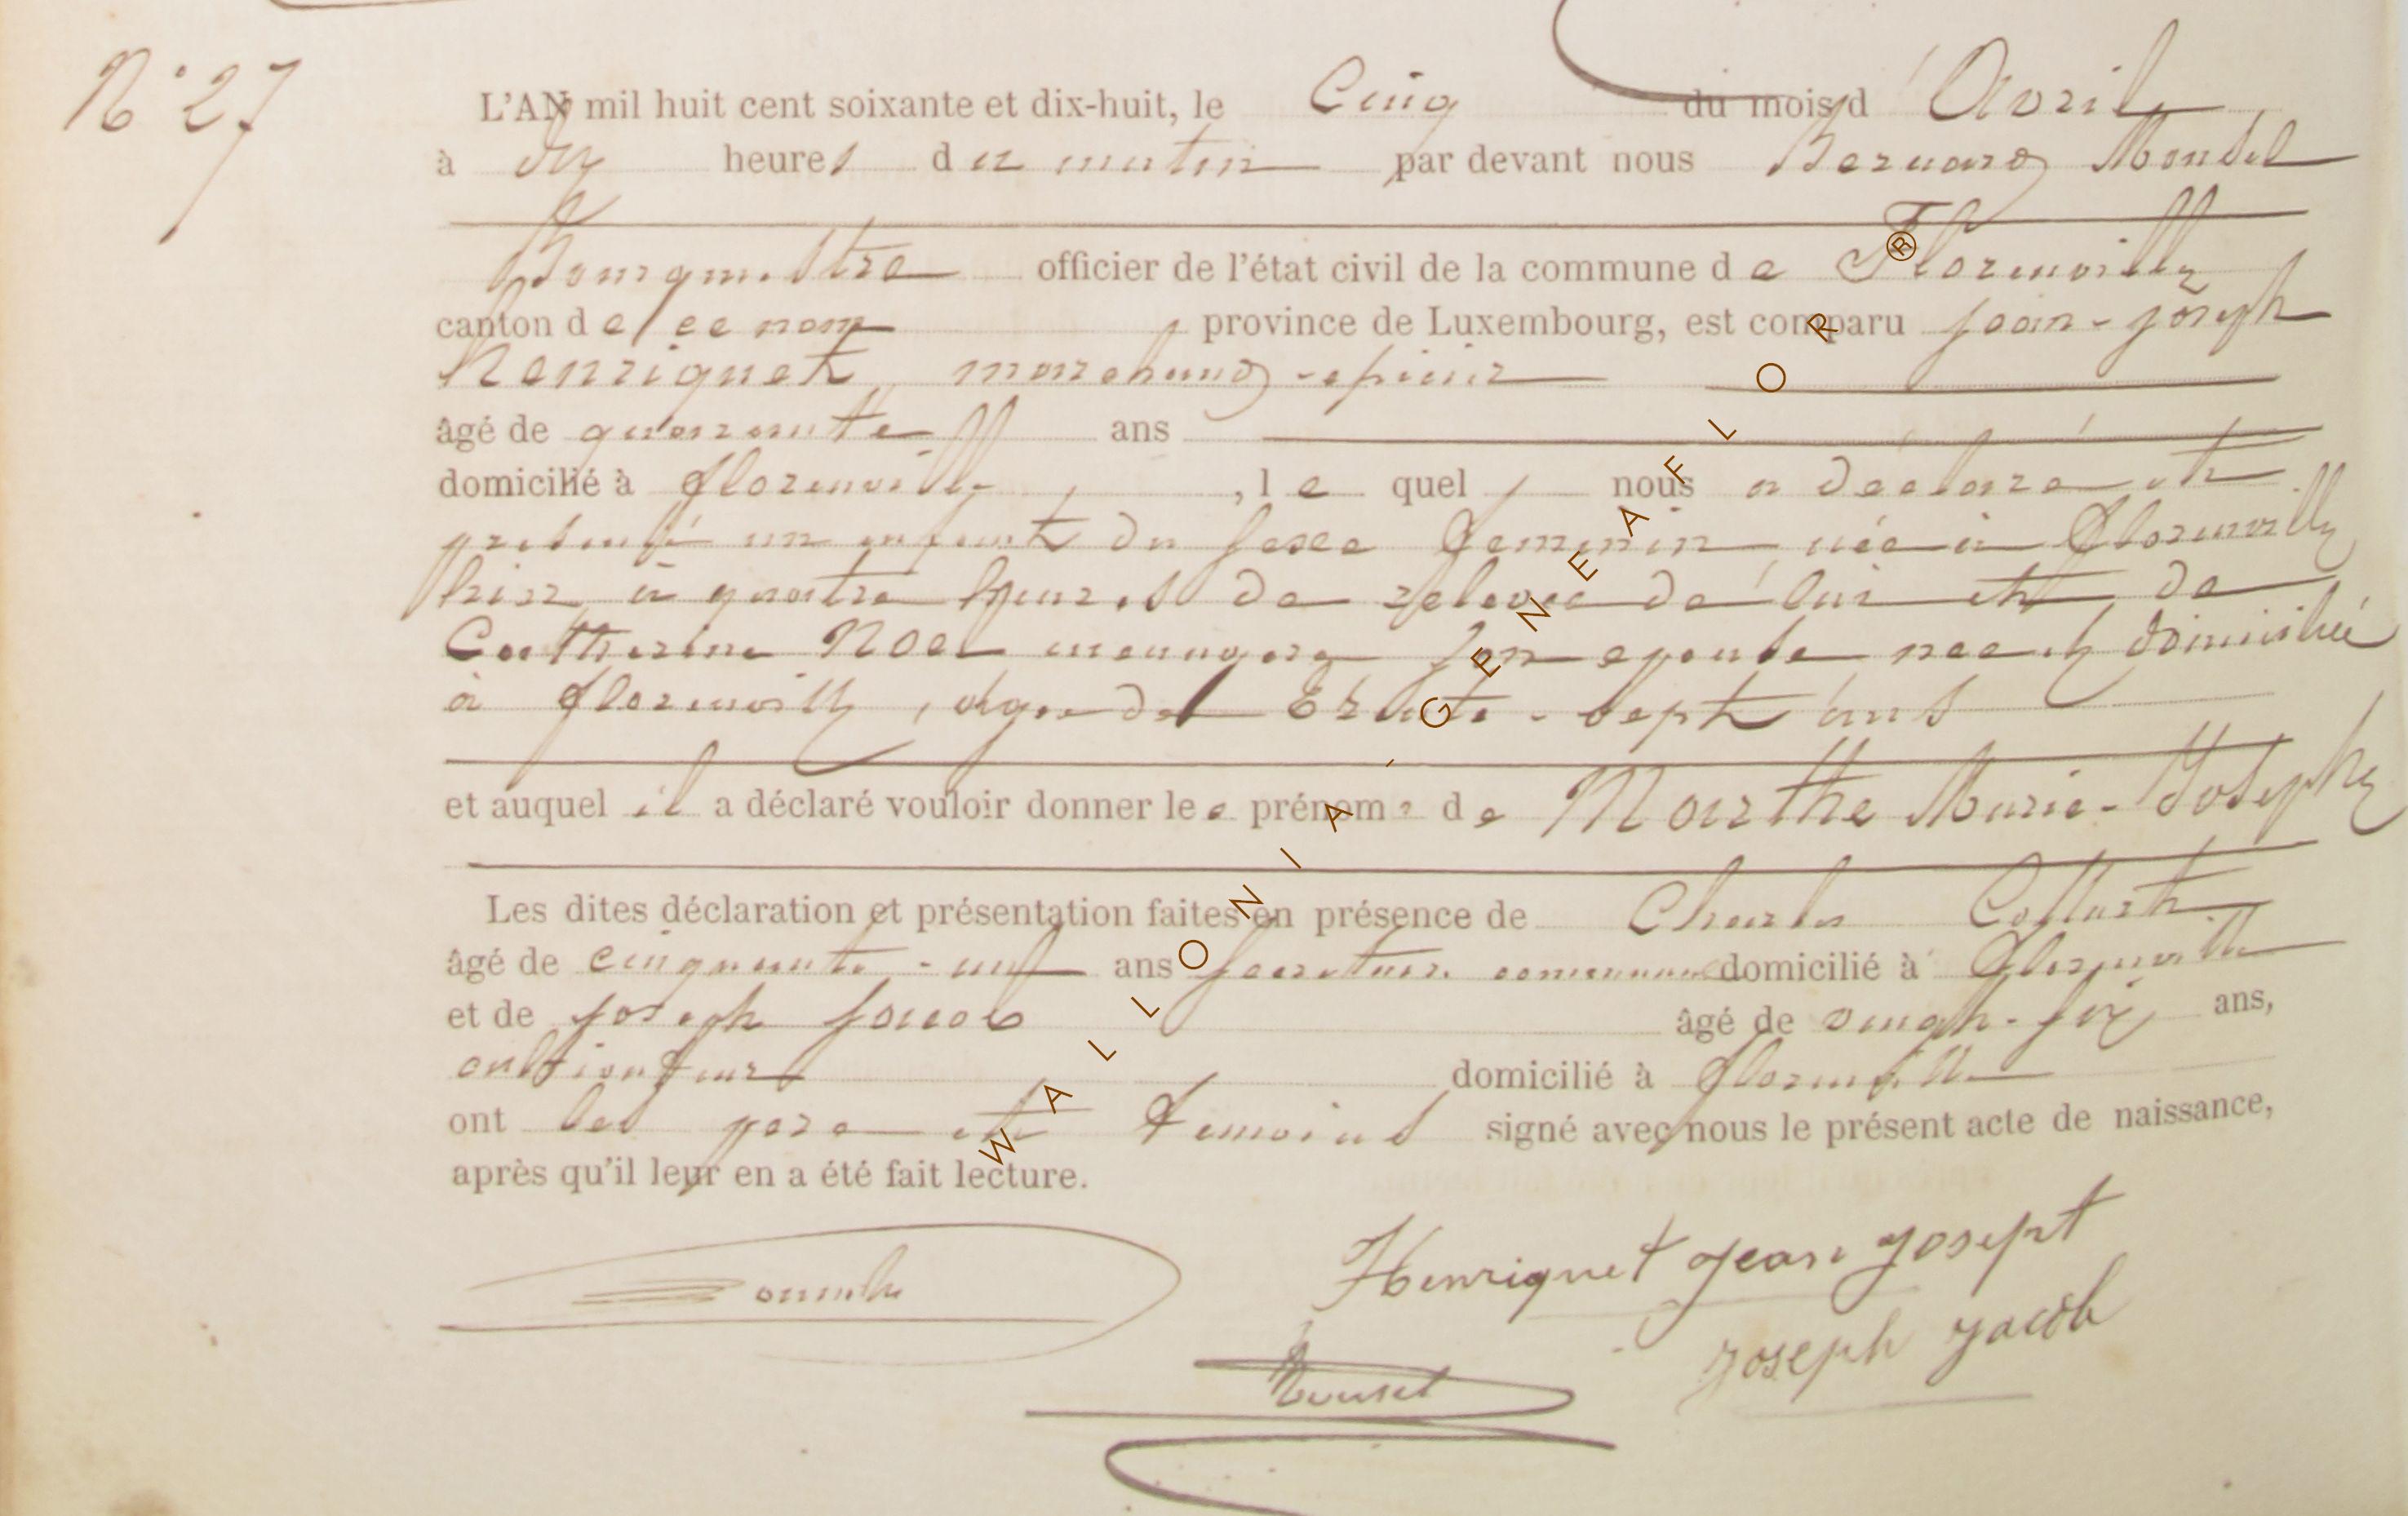 N° 27
L'AN mil huit cent soixante et dix-huit, le Cinq du mois d'Avril
à dix heures du matin par devant nous Bernard Monsel
Bourgmestre officier de l'état civil de la commune de Florenville
canton de ce nom, province de Luxembourg, est comparu Jean-Joseph
Henriquet, marchand-epicier
âgé de quarante ans
domicilié à Florenville, le quel nous a déclaré et
presenté un enfant du sexe feminin née à Florenville
hier à quatre heures de relevée de lui et de
Catherine Noel menagere son epouse née et domiciliée
à Florenville, agee de trente-sept ans
et auquel il a déclaré vouloir donner les prénoms de Marthe Marie-Josephe
Les dites déclaration et présentation faites en présence de Charles Collart
âgé de cinquante-un ans secretaire communal domicilié à Florenville
et de Joseph Jacob âgé de vingt-six ans,
cultivateur domicilié à Florenville
ont les pere et temoins signé avec nous le présent acte de naissance,
après qu'il leur en a été fait lecture.
Henriquet Jean Josept
Joseph Jacob
Monsel
WALLONIA-GENEAFLOR®